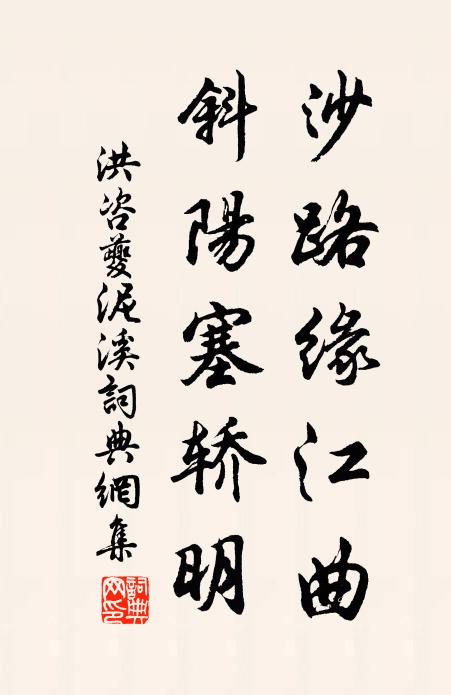 沙路缘江曲
斜陽塞轿明
洪咨夔泥溪詞典網集
詞典网印